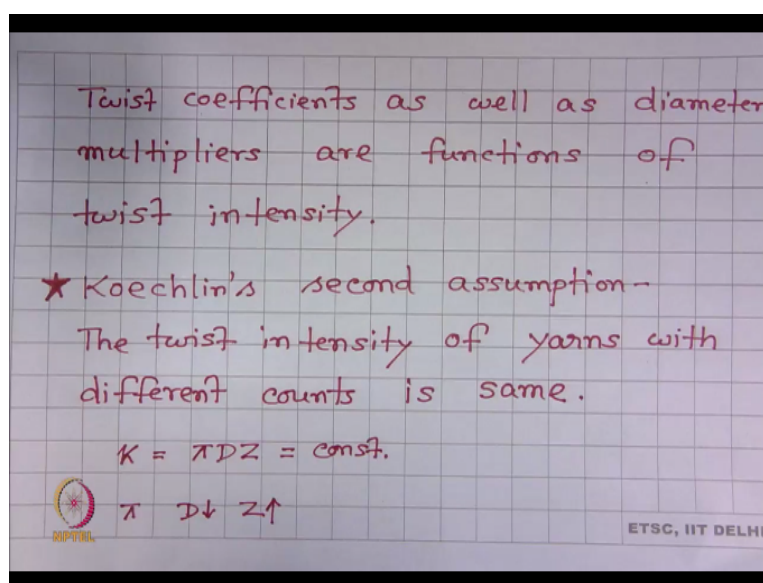 Twist coefficients as well as diameter
multipliers are functions of
twist intensity.
★ Koechlin's second assumption-
The twist intensity of yarns with
different counts is same.
K = πDZ = const.
π D↓ Z↑
NPTEL
ETSC, IIT DELHI